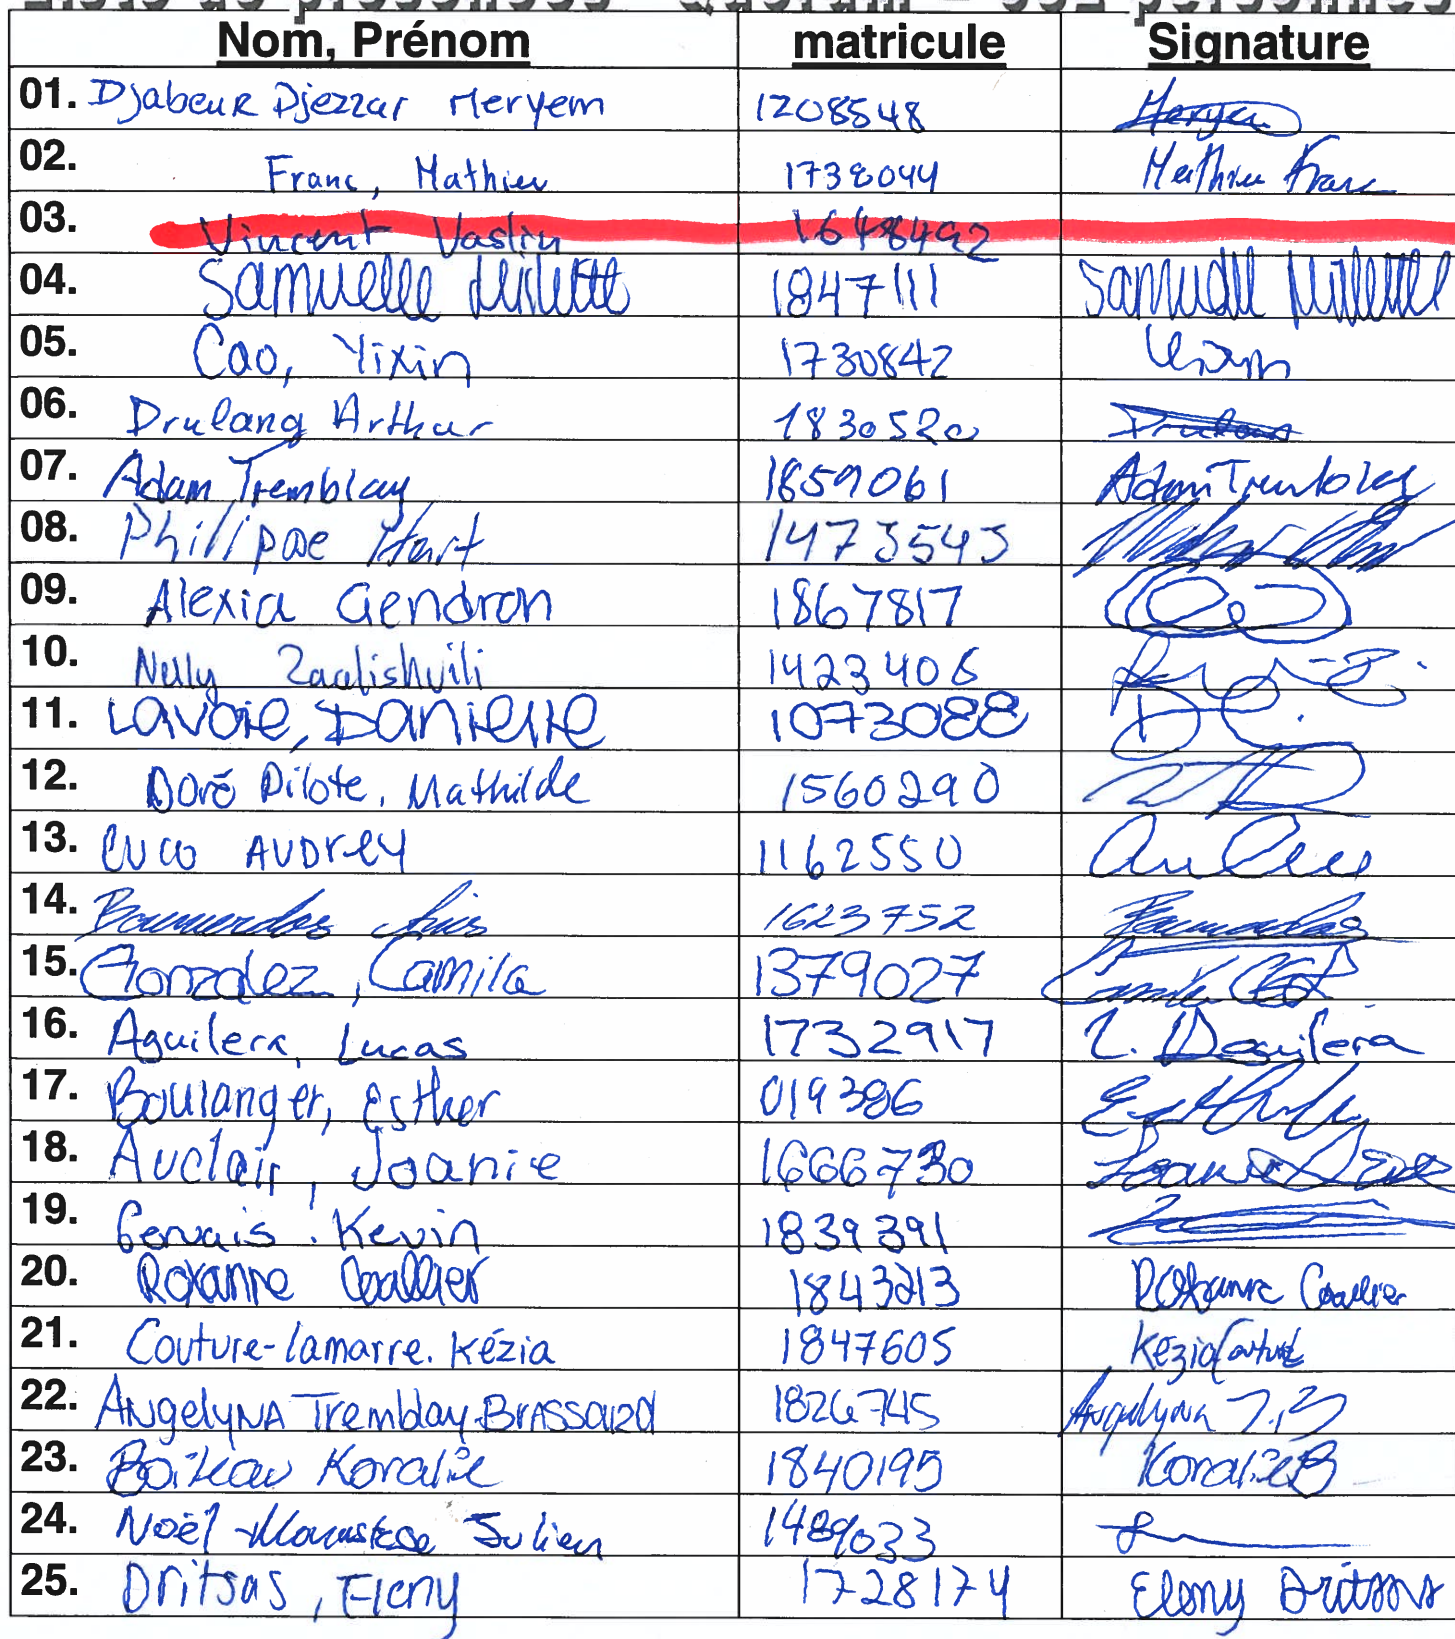 Nom, Prénom matricule Signature
01. Djabeur Djezzar Meryem 1208548 Meryem
02. Franc, Mathieu 1738044 Mathieu Franc
03. Vincent Vaslin 1648492
04. Samuelle Millette 1847111 Samuelle Millette
05. Cao, Yixin 1730842 Yixin
06. Drulang Arthur 1830520 Drulang
07. Adam Tremblay 1859061 Adam Tremblay
08. Philippe Hart 1473543
09. Alexia Gendron 1867817
10. Nelly Zaalishvili 1423406
11. Lavoie, Danielle 1073088
12. Doré Pilote, Mathilde 1560290
13. CUCO AUDrEY 1162550
14. 1623752
15. Gonzalez, Camila 1379027
16. Aguilera, Lucas 1732917 L. Aguilera
17. Boulanger, Esther 019386
18. Auclair, Joanie 1666730
19. Gervais, Kevin 1839391
20. Roxanne Coallier 1843213 Roxanne Coallier
21. Couture-lamarre. Kézia 1847605 Kézia Couture
22. Angelyna Tremblay-Brassard 1826745 Angelyna T.B
23. Boileau Koralie 1840195 Koralie B
24. Noël Julien 1489033
25. Dritsas, Eleny 1728174 Eleny Dritsas